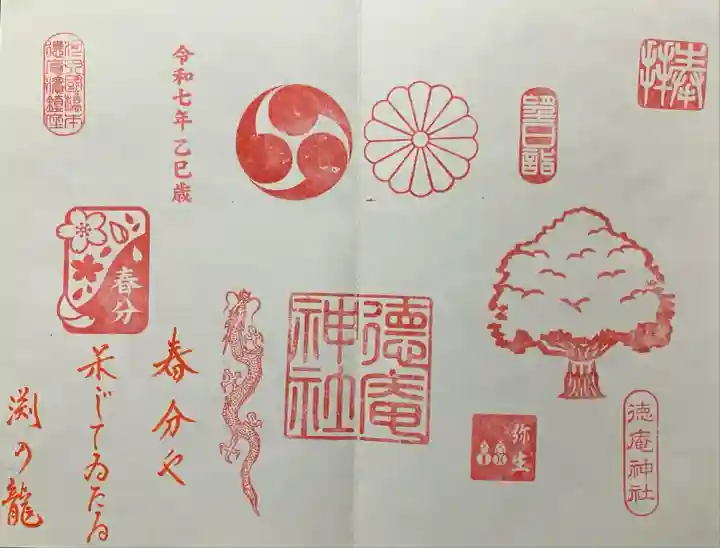 奉拝
徳庵神社
弥生
徳庵
神社
令和七年 乙巳歳
春分
春分や
呆けてゐたる
渕の龍